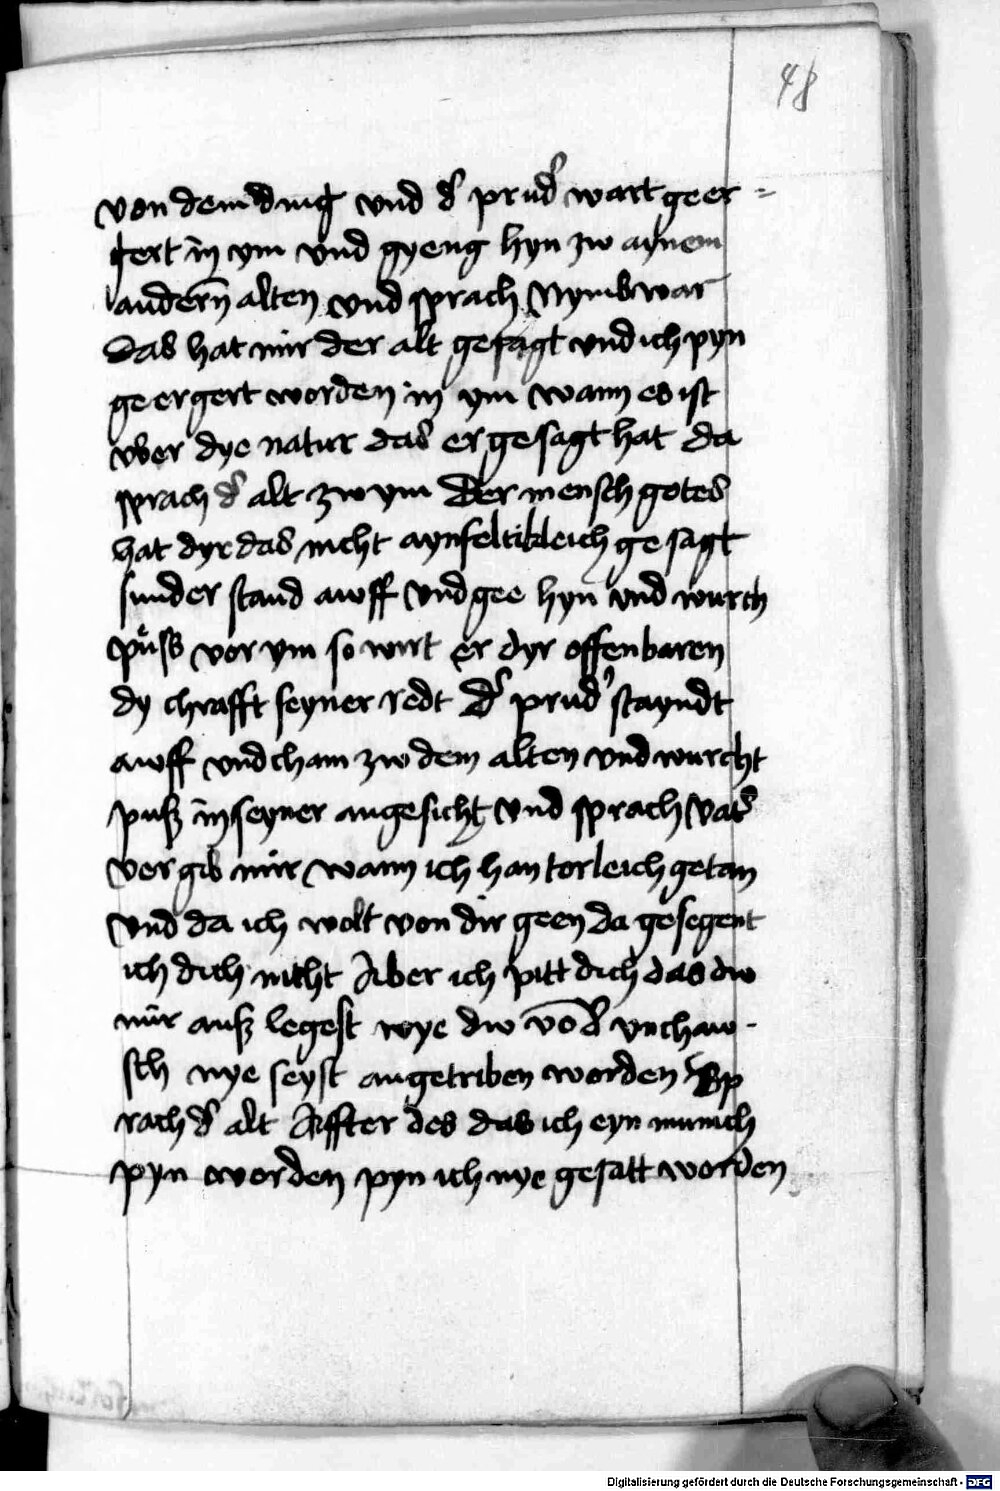 48
von dem ding vnd d͛ prud͛ wart geer =
gert in ym vnd gyeng hyn zw aynem
andern̄ alten vnd sprach Nymbwar
Das hat mir der alt gesagt vnd ich pyn
geergert worden in ym wann es ist
vber dye natur das er gesagt hat da
sprach d͛ alt zw ym Der mensch gotes
hat dyr das nicht aynfeltikleich gesagt
sunder stand awff vnd gee hyn vnd wurch
puͤss vor ym so wirt er dyr offenbaren
dy chrafft seyner redt D͛ prud͛ stayndt
awff vnd cham zw dem alten vnd wurcht
pusz in seyner angesicht vnd sprach vat͛
vergib mir wann ich han torleich getan
vnd da ich wolt von dir geen da gesegent
ich dich nicht Aber ich pitt dich das dw
mir ausz legest wye dw vō d͛ vnchaw-
sch nye seyst angetriben worden Sp
rach d͛ alt Affter des das ich eyn munich
pyn worden pyn ich nye gesatt worden
Digitalisierung gefördert durch die Deutsche Forschungsgemeinschaft - DFG